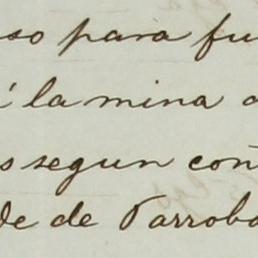 so para fu
í la mina
s segun con
de de Parroba